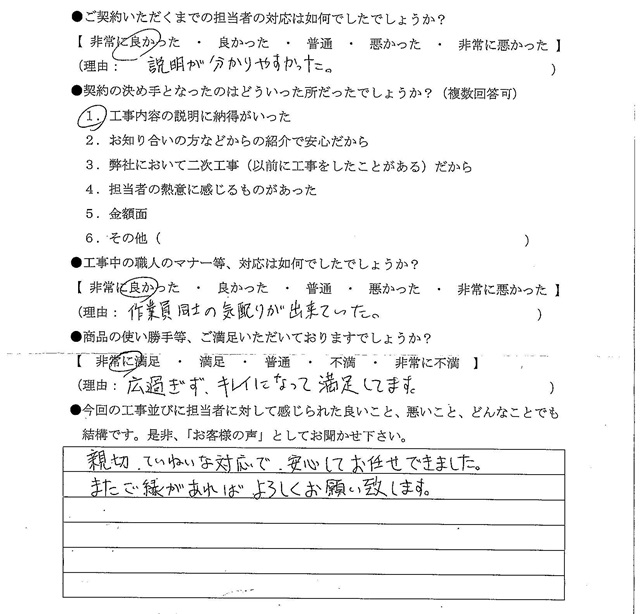 ●ご契約いただくまでの担当者の対応は如何でしたでしょうか？
【 非常に良かった ・ 良かった ・ 普通 ・ 悪かった ・ 非常に悪かった 】
（理由： 説明が分かりやすかった。 ）
●契約の決め手となったのはどういった所だったでしょうか？（複数回答可）
１．工事内容の説明に納得がいった
２．お知り合いの方などからの紹介で安心だから
３．弊社において二次工事（以前に工事をしたことがある）だから
４．担当者の熱意に感じるものがあった
５．金額面
６．その他（ ）
●工事中の職人のマナー等、対応は如何でしたでしょうか？
【 非常に良かった ・ 良かった ・ 普通 ・ 悪かった ・ 非常に悪かった 】
（理由： 作業員同士の気配りが出来ていた。 ）
●商品の使い勝手等、ご満足いただいておりますでしょうか？
【 非常に満足 ・ 満足 ・ 普通 ・ 不満 ・ 非常に不満 】
（理由： 広過ぎず、キレイになって満足してます。 ）
●今回の工事並びに担当者に対して感じられた良いこと、悪いこと、どんなことでも
結構です。是非、「お客様の声」としてお聞かせ下さい。
親切、ていねいな対応で、安心してお任せできました。
またご縁があればよろしくお願い致します。